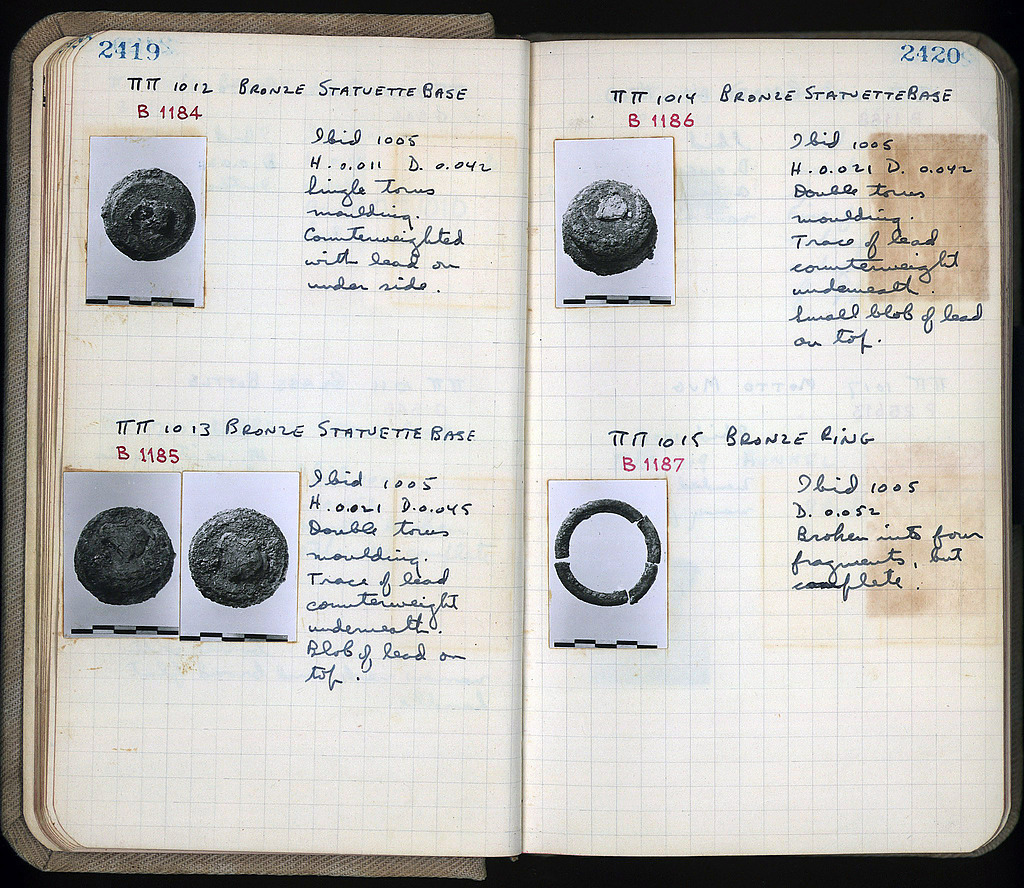 2419
ΠΠ 1012 BRONZE STATUETTE BASE
B 1184
Ibid 1005
H. 0.011 D. 0.042
Single torus
moulding.
Counterweighted
with lead on
under side.
ΠΠ 1013 BRONZE STATUETTE BASE
B 1185
Ibid 1005
H. 0.021 D. 0.045
Double torus
moulding.
Trace of lead
counterweight
underneath.
Blob of lead on
top.
2420
ΠΠ 1014 BRONZE STATUETTE BASE
B 1186
Ibid 1005
H. 0.021 D. 0.042
Double torus
moulding.
Trace of lead
counterweight
underneath.
Small blob of lead
on top.
ΠΠ 1015 BRONZE RING
B 1187
Ibid 1005
D. 0.052
Broken into four
fragments, but
complete.